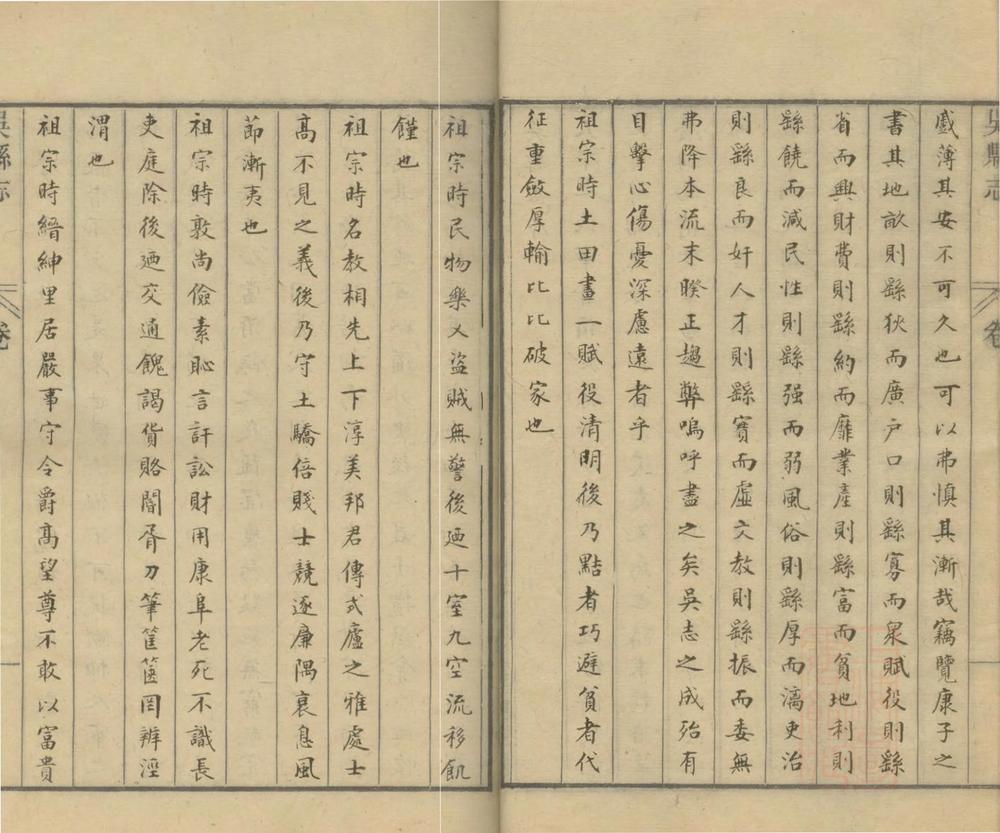 吳縣志
卷
戲薄其安不可久也可以弗慎其漸哉竊覽康子之
書其地畝則繇狄而廣户口則繇寡而衆賦役則繇
省而興財費則繇約而靡業產則繇富而貧地利則
繇饒而減民性則繇强而弱風俗則繇厚而漓吏治
則繇良而奸人才則繇實而虛文教則繇振而委無
弗降本流末睽正趨弊嗚呼盡之矣吳志之成殆有
目擊心傷憂深慮遠者乎
祖宗時土田畫一賦役清明後乃點者巧避貧者代
征重斂厚輸比比破家也
祖宗時民物樂乂盜賊無警後廼十室九空流移飢
饉也
祖宗時名教相先上下淳美邦君傳式廬之雅處士
高不見之義後乃守土驕倍賤士競逐廉隅衰息風
節漸夷也
祖宗時敦尚儉素恥言訐訟財用康阜老死不識長
吏庭除後廼交通餽謁貨賂閽胥刀筆筐篋罔辨涇
渭也
祖宗時縉紳里居嚴事守令爵高望尊不敢以富貴
吳縣志
卷